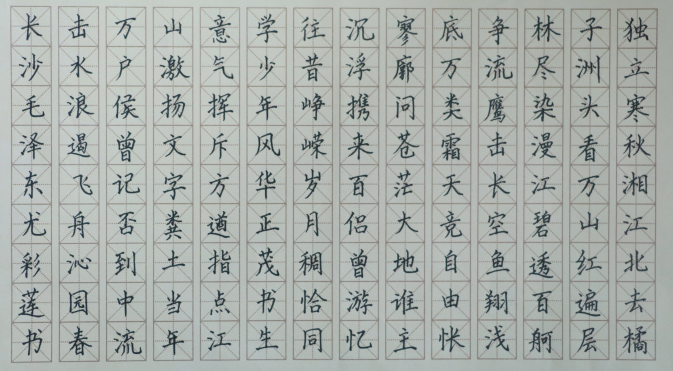 独立寒秋湘江北去橘
子洲头看万山红遍层
林尽染漫江碧透百舸
争流鹰击长空鱼翔浅
底万类霜天竞自由怅
寥廓问苍茫大地谁主
沉浮携来百侣曾游忆
往昔峥嵘岁月稠恰同
学少年风华正茂书生
意气挥斥方遒指点江
山激扬文字粪土当年
万户侯曾记否到中流
击水浪遏飞舟沁园春
长沙毛泽东尤彩莲书